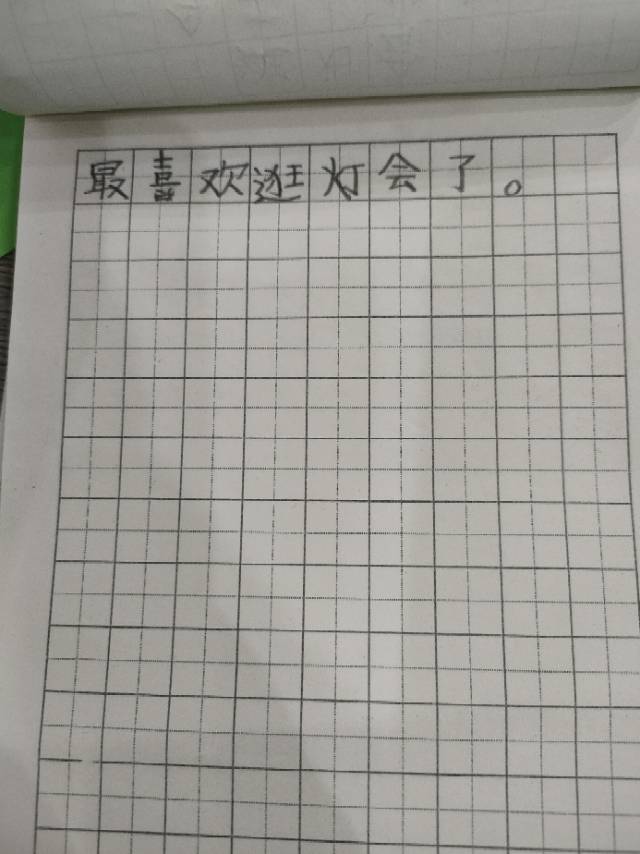 最喜欢逛灯会了。